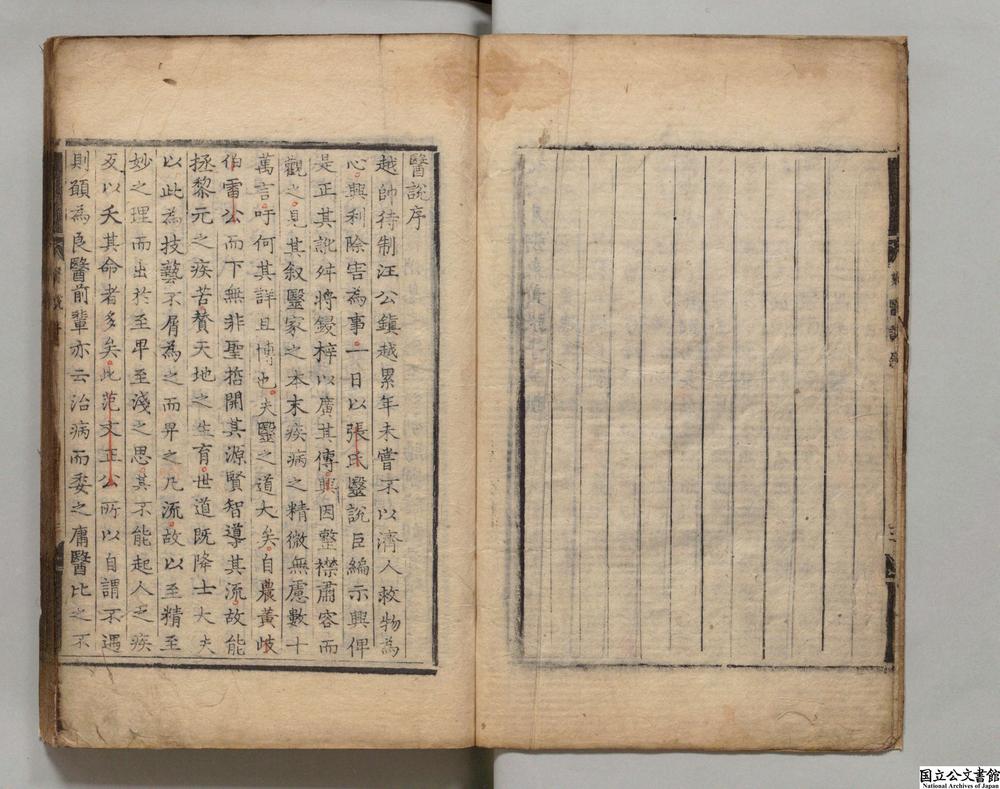 醫說序
越帥待制汪公鎮越累年未嘗不以濟人救物為
心興利除害為事一日以張氏醫說巨編示興俾
是正其訛舛將鋟梓以廣其傳興因整襟肅容而
觀之見其叙醫家之本末疾病之精微無慮數十
萬言吁何其詳且博也夫醫之道大矣自農黃岐
伯雷公而下無非聖哲開其源賢智導其流故能
拯黎元之疾苦贊天地之生育世道既降士大夫
以此為技藝不屑為之而畀之凡流故以至精至
妙之理而出於至卑至淺之思其不能起人之疾
反以夭其命者多矣此范文正公所以自謂不遇
則願為良醫前輩亦云治病而委之庸醫比之不
国立公文書館
National Archives of Japan